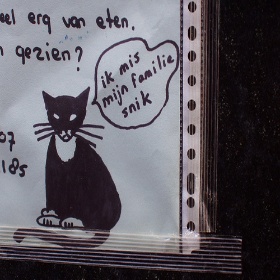 eel erg van eten.
n gezien?
ik mis
mijn familie
snik
07
185